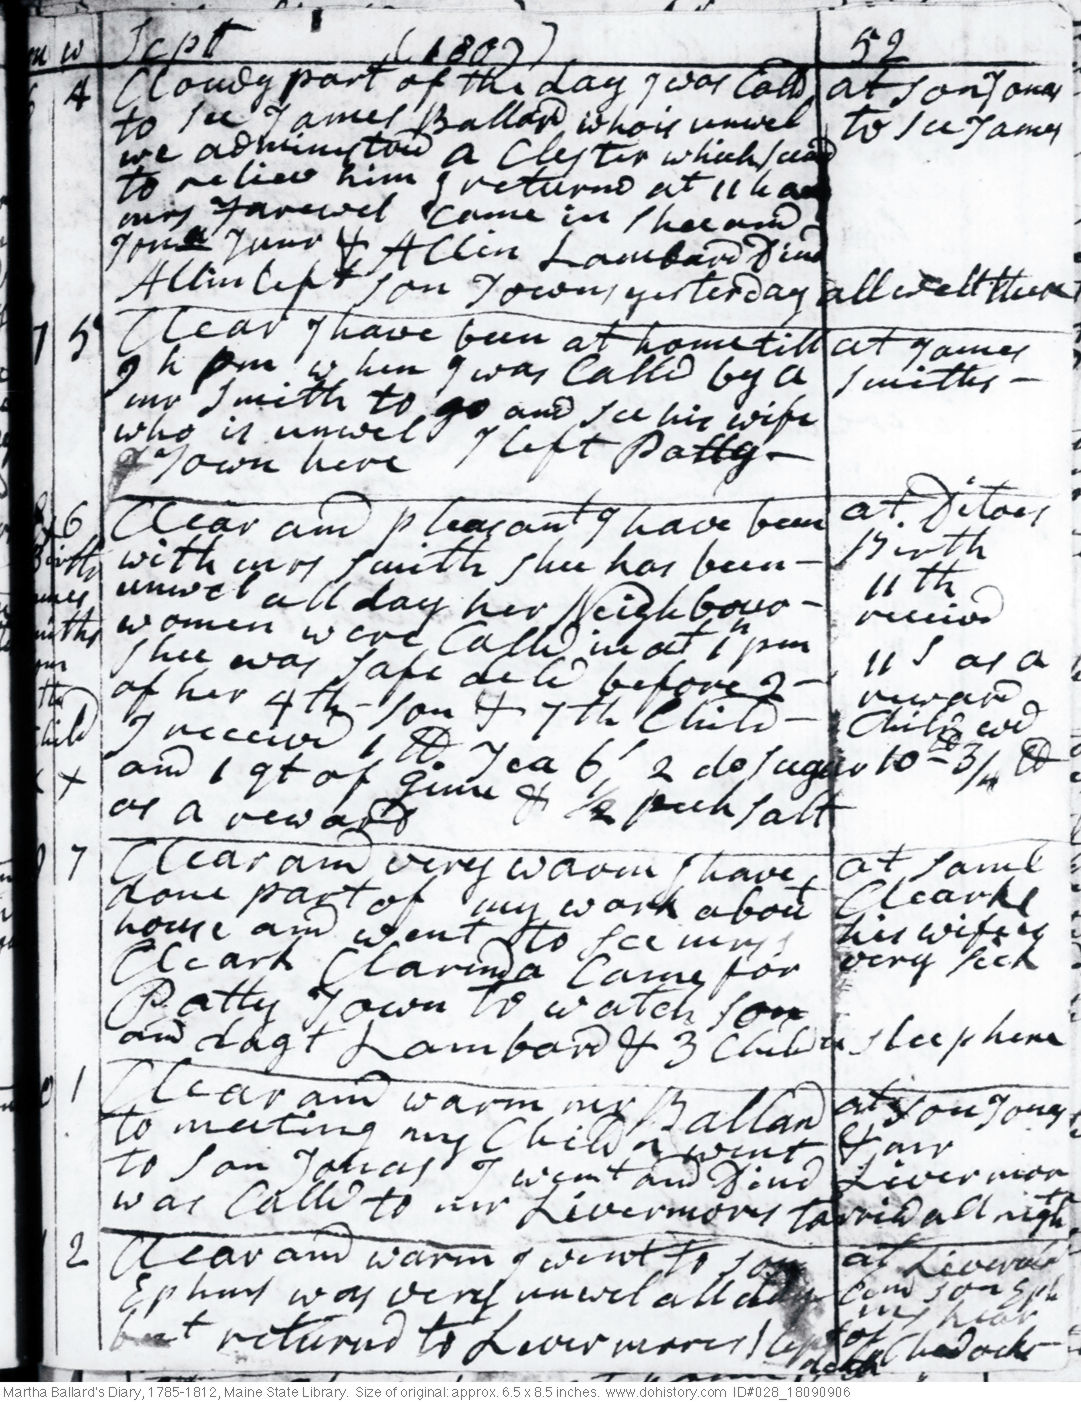 m w Sept (1809) 52
6 4 Cloudy part of the day I was Calld at son Jonas
to see James Ballard who is unwel to see James
we administerd a Clister which seemd
to reliev him I returnd at 11 h am
mrs Farewel Came in shee and
Jona Junr & Allin Lambard Dind
Allin left son Towns yesterday all well there
7 5 Clear I have been at home till at James
9 h pm when I was Calld by a Smiths –
mr Smith to go and see his wife
who is unwel I left Patty –
Town here
8 6 Clear and pleasant I have been at Ditoes
Birth with mrs Smith shee has been – Birth
unwel all day her Neighbour – 11th
women were Calld in at 1 h pm receivd
shee was safe deld before 2 – 11 S as a
of her 4th son & 7th Child – reward
I receivd 1 lb Tea 6/ 2 do sugar 10d 3/4 lb
x x and 1 qt of ginn & 1/2 peck salt
as a reward
7 Clear and very warm I have at Saml
done part of my work about Clearks
house and went to see mrs his wife is
Cleark Clarinda Came for very sick
Patty Town to watch son
and dagt Lambard & 3 Childn sleep here
1 Clear and warm mr Ballard at son Jonas
to meeting my Childn went & mr
to son Jonas I went and Dind Livermor
was Calld to mr Livermores tarrid all night
2 Clear and warm I went to son at Livermors
Ephms was very unwel all day and son Eph
but returnd to Livermores I
death
Martha Ballard's Diary, 1785-1812, Maine State Library. Size of original: approx. 6.5 x 8.5 inches. www.dohistory.com ID#028_18090906